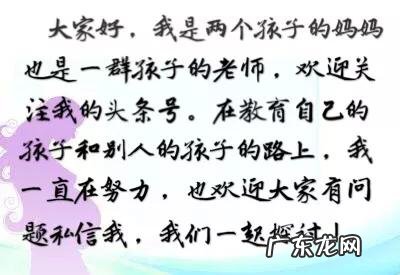 大家好，我是两个孩子的妈妈
也是一群孩子的老师，欢迎关
注我的头条号。在教育自己的
孩子和别人的孩子的路上，我
一直在努力，也欢迎大家有问
题私信我，我们一起探讨！
广东龙网